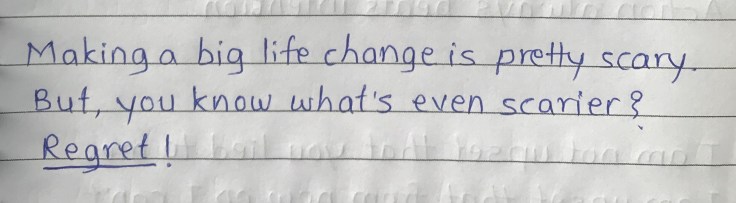 Making a big life change is pretty scary.
But, you know what's even scarier?
Regret!